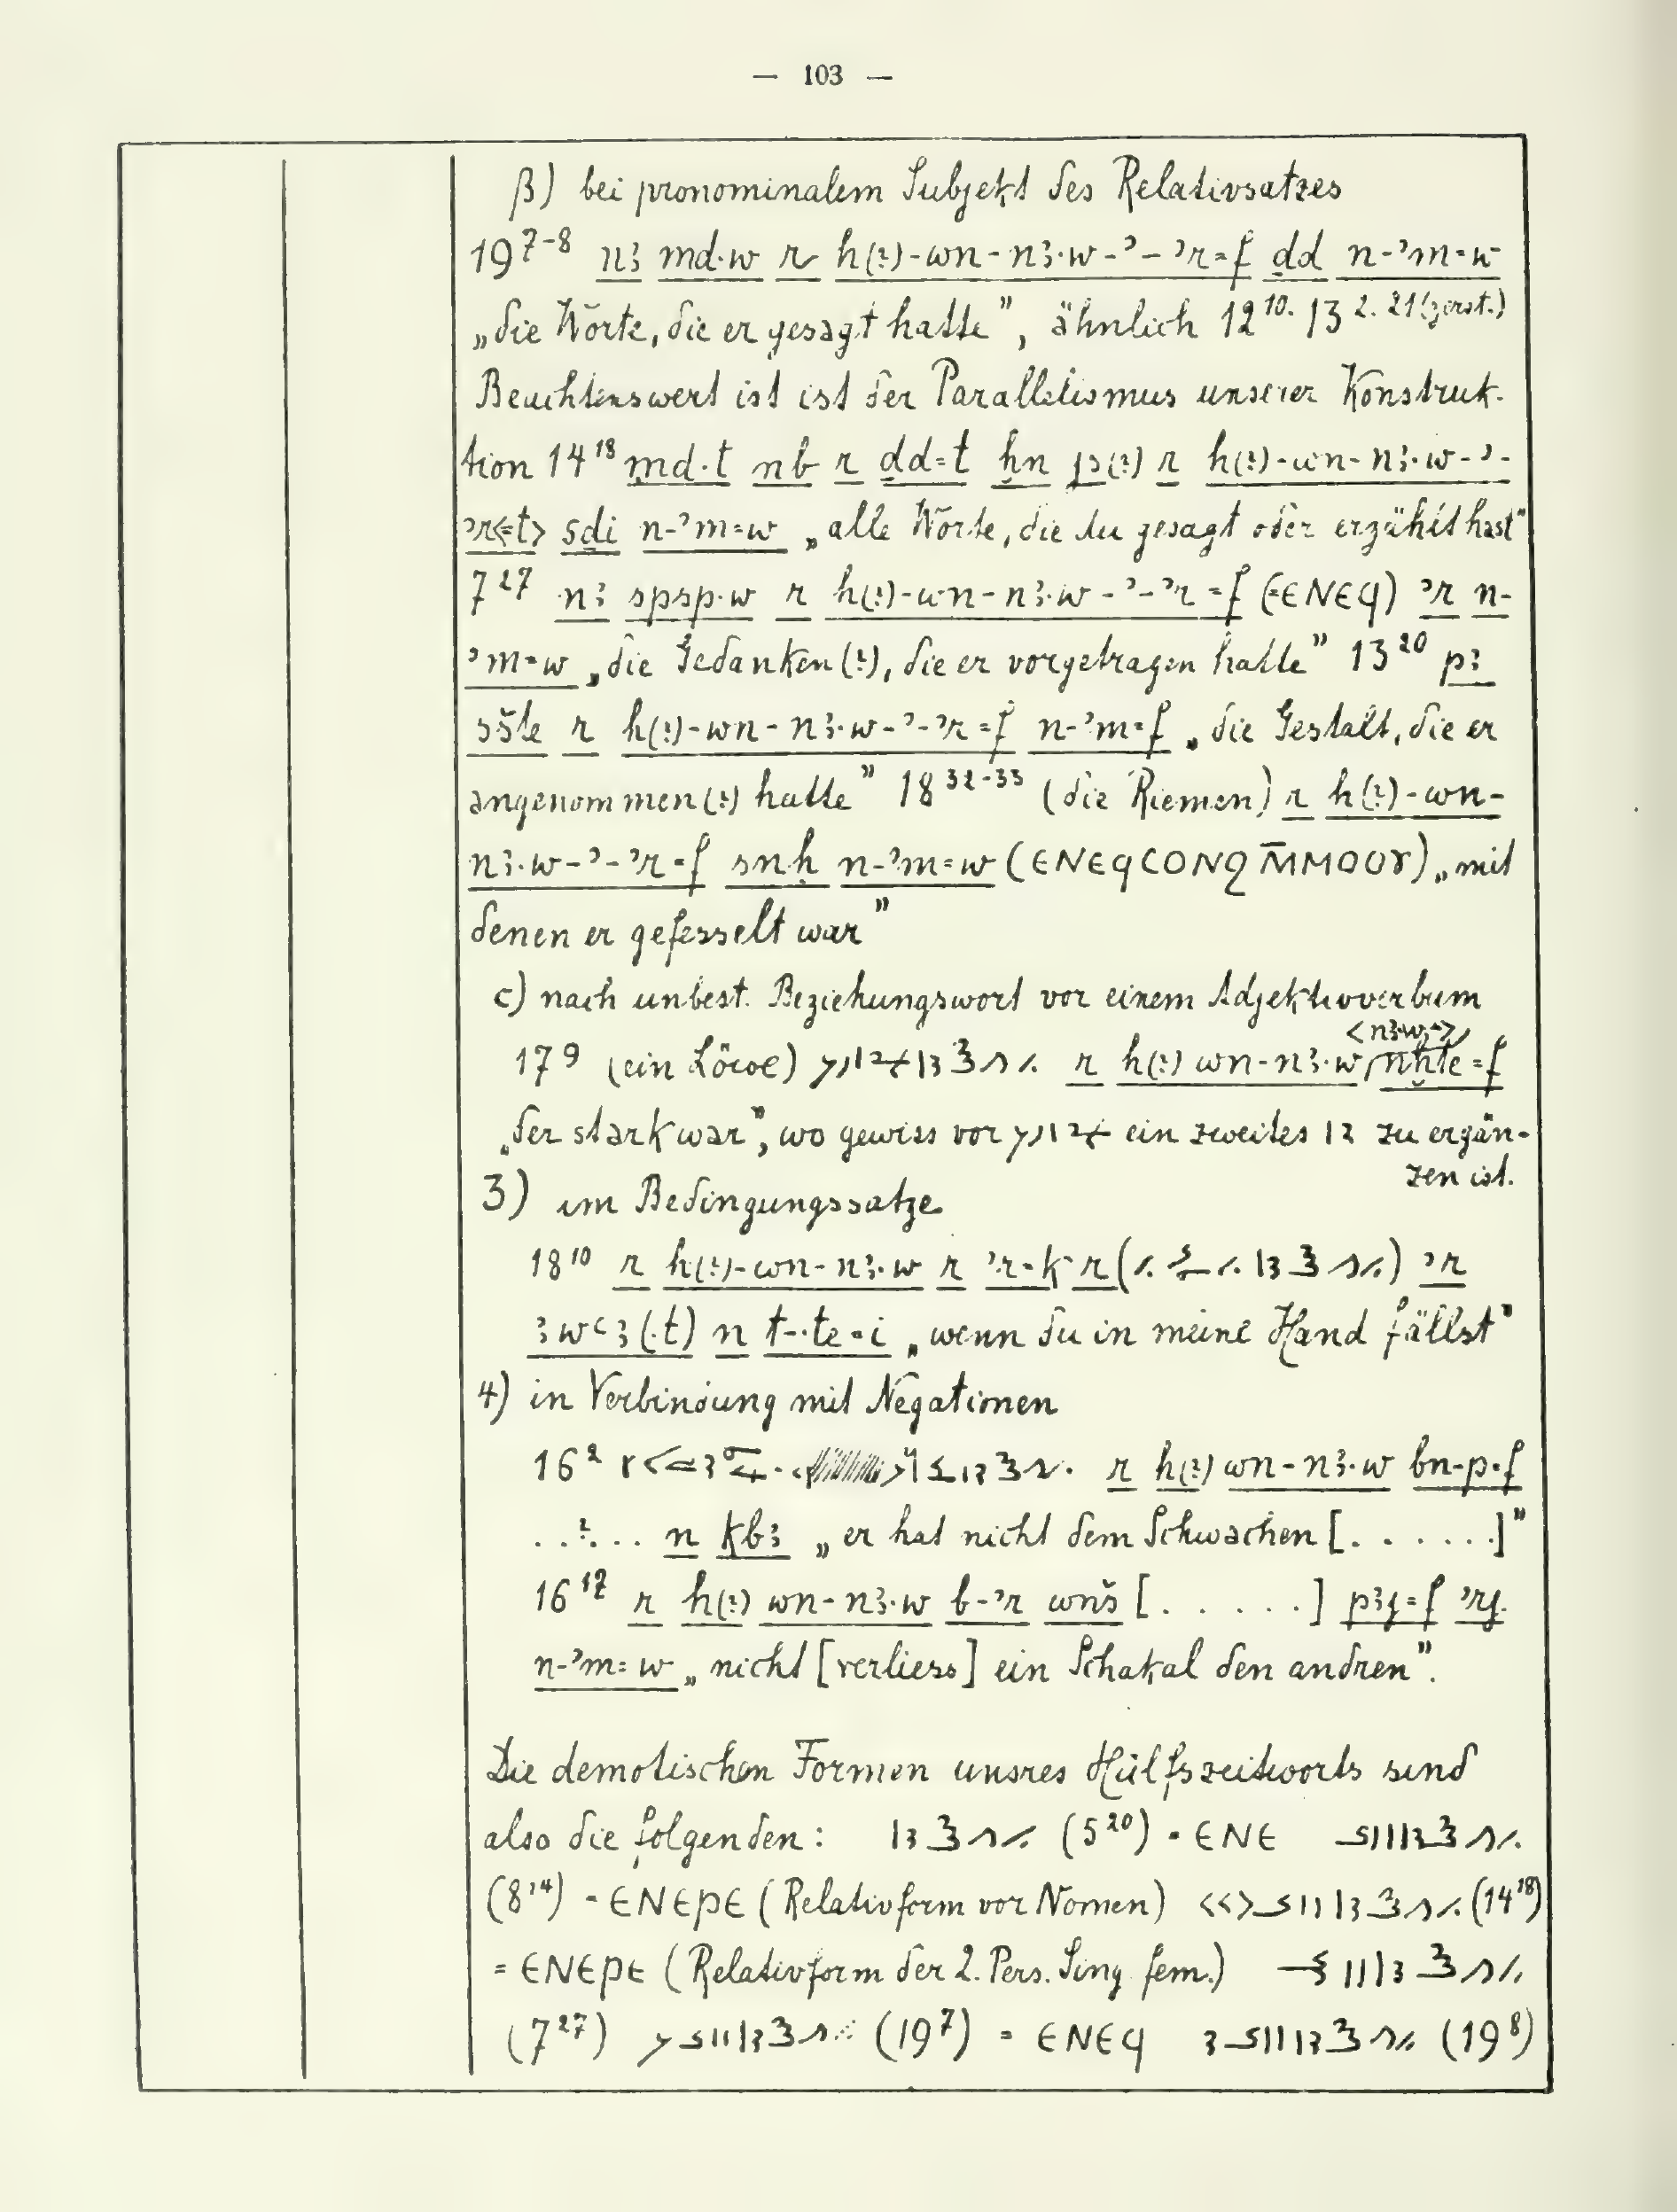 — 103 —
β) bei pronominalem Subjekt des Relativsatzes
19⁷⁻⁸ nꜣ md·w r h(?)-wn-nꜣ·w-ʾ-ʾr=f ḏd n-ʾm=w
„die Worte, die er gesagt hatte”, ähnlich 12¹⁰· 13²·²¹(zerst.)
Beachtenswert ist ist der Parallelismus unserer Konstruk-
tion 14¹⁸ md·t nb r ḏd=t ḥn pꜣ(?) r h(?)-wn-nꜣ·w-ʾ-
ʾr<=t> sḏi n-ʾm=w „alle Worte, die du gesagt oder erzählt hast”
7²⁷ nꜣ spsp·w r h(?)-wn-nꜣ·w-ʾ-ʾr=f (=ⲈⲚⲈϤ) ʾr n-
ʾm=w „die Gedanken(?), die er vorgetragen hatte” 13²⁰ pꜣ
sšte r h(?)-wn-nꜣ·w-ʾ-ʾr=f n-ʾm=f „die Gestalt, die er
angenommen(?) hatte” 18³²⁻³³ (die Riemen) r h(?)-wn-
nꜣ·w-ʾ-ʾr=f snḥ n-ʾm=w (ⲈⲚⲈϤⲤⲞⲚϨ Ⲙ̄ⲘⲞⲞⲨ) „mit
denen er gefesselt war”
c) nach unbest. Beziehungswort vor einem Adjektivverbum
<nꜣ·w->
17⁹ (ein Löwe) r h(?) wn-nꜣ·w nḫte=f
„der stark war”, wo gewiss vor ein zweites zu ergän-
zen ist.
3) im Bedingungssatze
18¹⁰ r h(?)-wn-nꜣ·w r ʾr=k r () ʾr
ꜣwꜥꜣ(·t) n t-·te=i „wenn du in meine Hand fällst”
4) in Verbindung mit Negationen
16² r h(?) wn-nꜣ·w bn-p=f
..?.. n kbꜣ „er hat nicht dem Schwachen [......]”
16¹⁷ r h(?) wn-nꜣ·w b-ʾr wnš [.....] pꜣy=f ʾry
n-ʾm=w „nicht [verliess] ein Schakal den andren”.
Die demotischen Formen unsres Hülfszeitworts sind
also die folgenden: (5²⁰) = ⲈⲚⲈ
(8¹⁴) = ⲈⲚⲈⲢⲈ (Relativform vor Nomen) (14¹⁸)
= ⲈⲚⲈⲢⲈ (Relativform der 2. Pers. Sing. fem.)
(7²⁷) (19⁷) = ⲈⲚⲈϤ (19⁸)